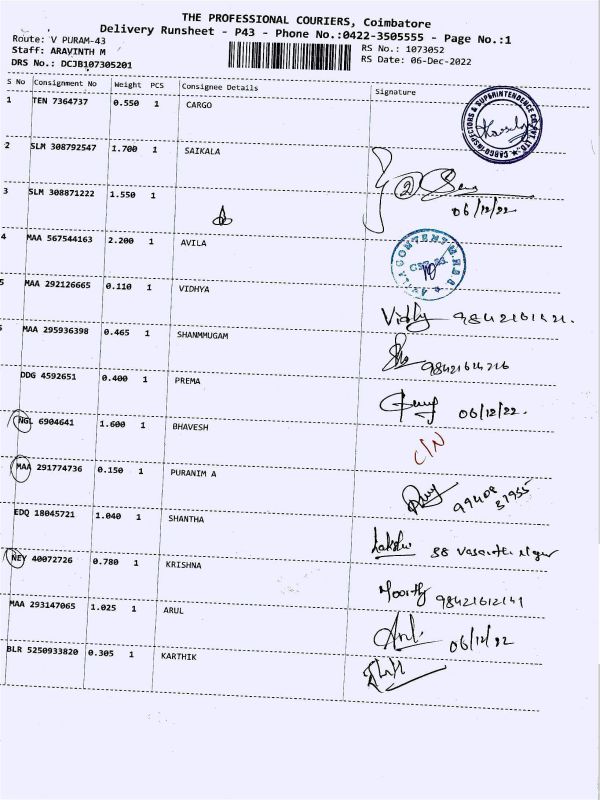 THE PROFESSIONAL COURIERS, Coimbatore
Delivery Runsheet - P43 - Phone No.:0422-3505555 - Page No.:1
Route: V PURAM-43
Staff: ARAVINTH M
DRS No.: DCJB107305201
RS No.: 1073052
RS Date: 06-Dec-2022
S No Consignment No Weight PCS Consignee Details Signature
1 TEN 7364737 0.550 1 CARGO
CARGO INSPECTORS & SUPERINTENDENCE CO. PVT. LTD.
2 SLM 308792547 1.700 1 SAIKALA
2
06/12/22
3 SLM 308871222 1.550 1
4 MAA 567544163 2.200 1 AVILA
AVILA CONVENT M.H.S.S
5 MAA 292126665 0.110 1 VIDHYA
Vidhy
MAA 295936398 0.465 1 SHANMMUGAM
DDG 4592651 0.400 1 PREMA
06/12/22.
NGL 6904641 1.600 1 BHAVESH
C/N
MAA 291774736 0.150 1 PURANIM A
99408 31955
EDQ 18045721 1.040 1 SHANTHA
NEY 40072726 0.780 1 KRISHNA
Moorthy
MAA 293147065 1.025 1 ARUL
Arul 06/12/22
BLR 5250933820 0.305 1 KARTHIK